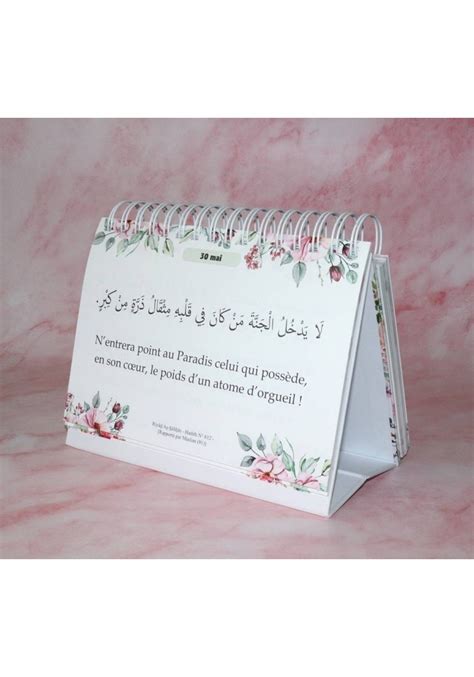 30 mai
لَا يَدْخُلُ الْجَنَّةَ مَنْ كَانَ فِي قَلْبِهِ مِثْقَالُ ذَرَّةٍ مِنْ كِبْرٍ.
N'entrera point au Paradis celui qui possède,
en son cœur, le poids d'un atome d'orgueil !
Riyâd As-Sâlihîn - Hadith N° 612 -
(Rapporté par Muslim